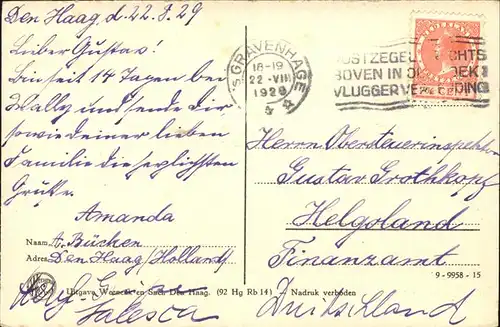 Den Haag, d. 22. 8. 29
Lieber Gustav!
Bin seit 14 Tagen bei
Wally und sende dir
sowie deiner lieben
Familie die herzlichsten
Grüße.
Amanda
Naam: A. Bücken
Adres: Den Haag (Holland)
Uitgave Weenenk en Snel, Den Haag. (92 Hg Rb 14) — Nadruk verboden
Valesca
'S GRAVENHAGE
18-19
22 - VIII
1929
POSTZEGEL RECHTS
BOVEN IN DEN HOEK
VLUGGER VERZENDING
Herrn Obersteuerinspektor
Gustav Grothkopf
Helgoland
Finanzamt
9-9958-15
Deutschland